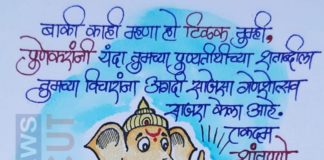 बाकी काही म्हणा हो टिळक तुम्ही,
पुणेकरांनी यंदा तुमच्या पुण्यतिथीच्या शताब्दीला
तुमच्या विचारांना अगदी साजेसा गणेशोत्सव
साजरा केला आहे.
एकदम
NEWS
CUT